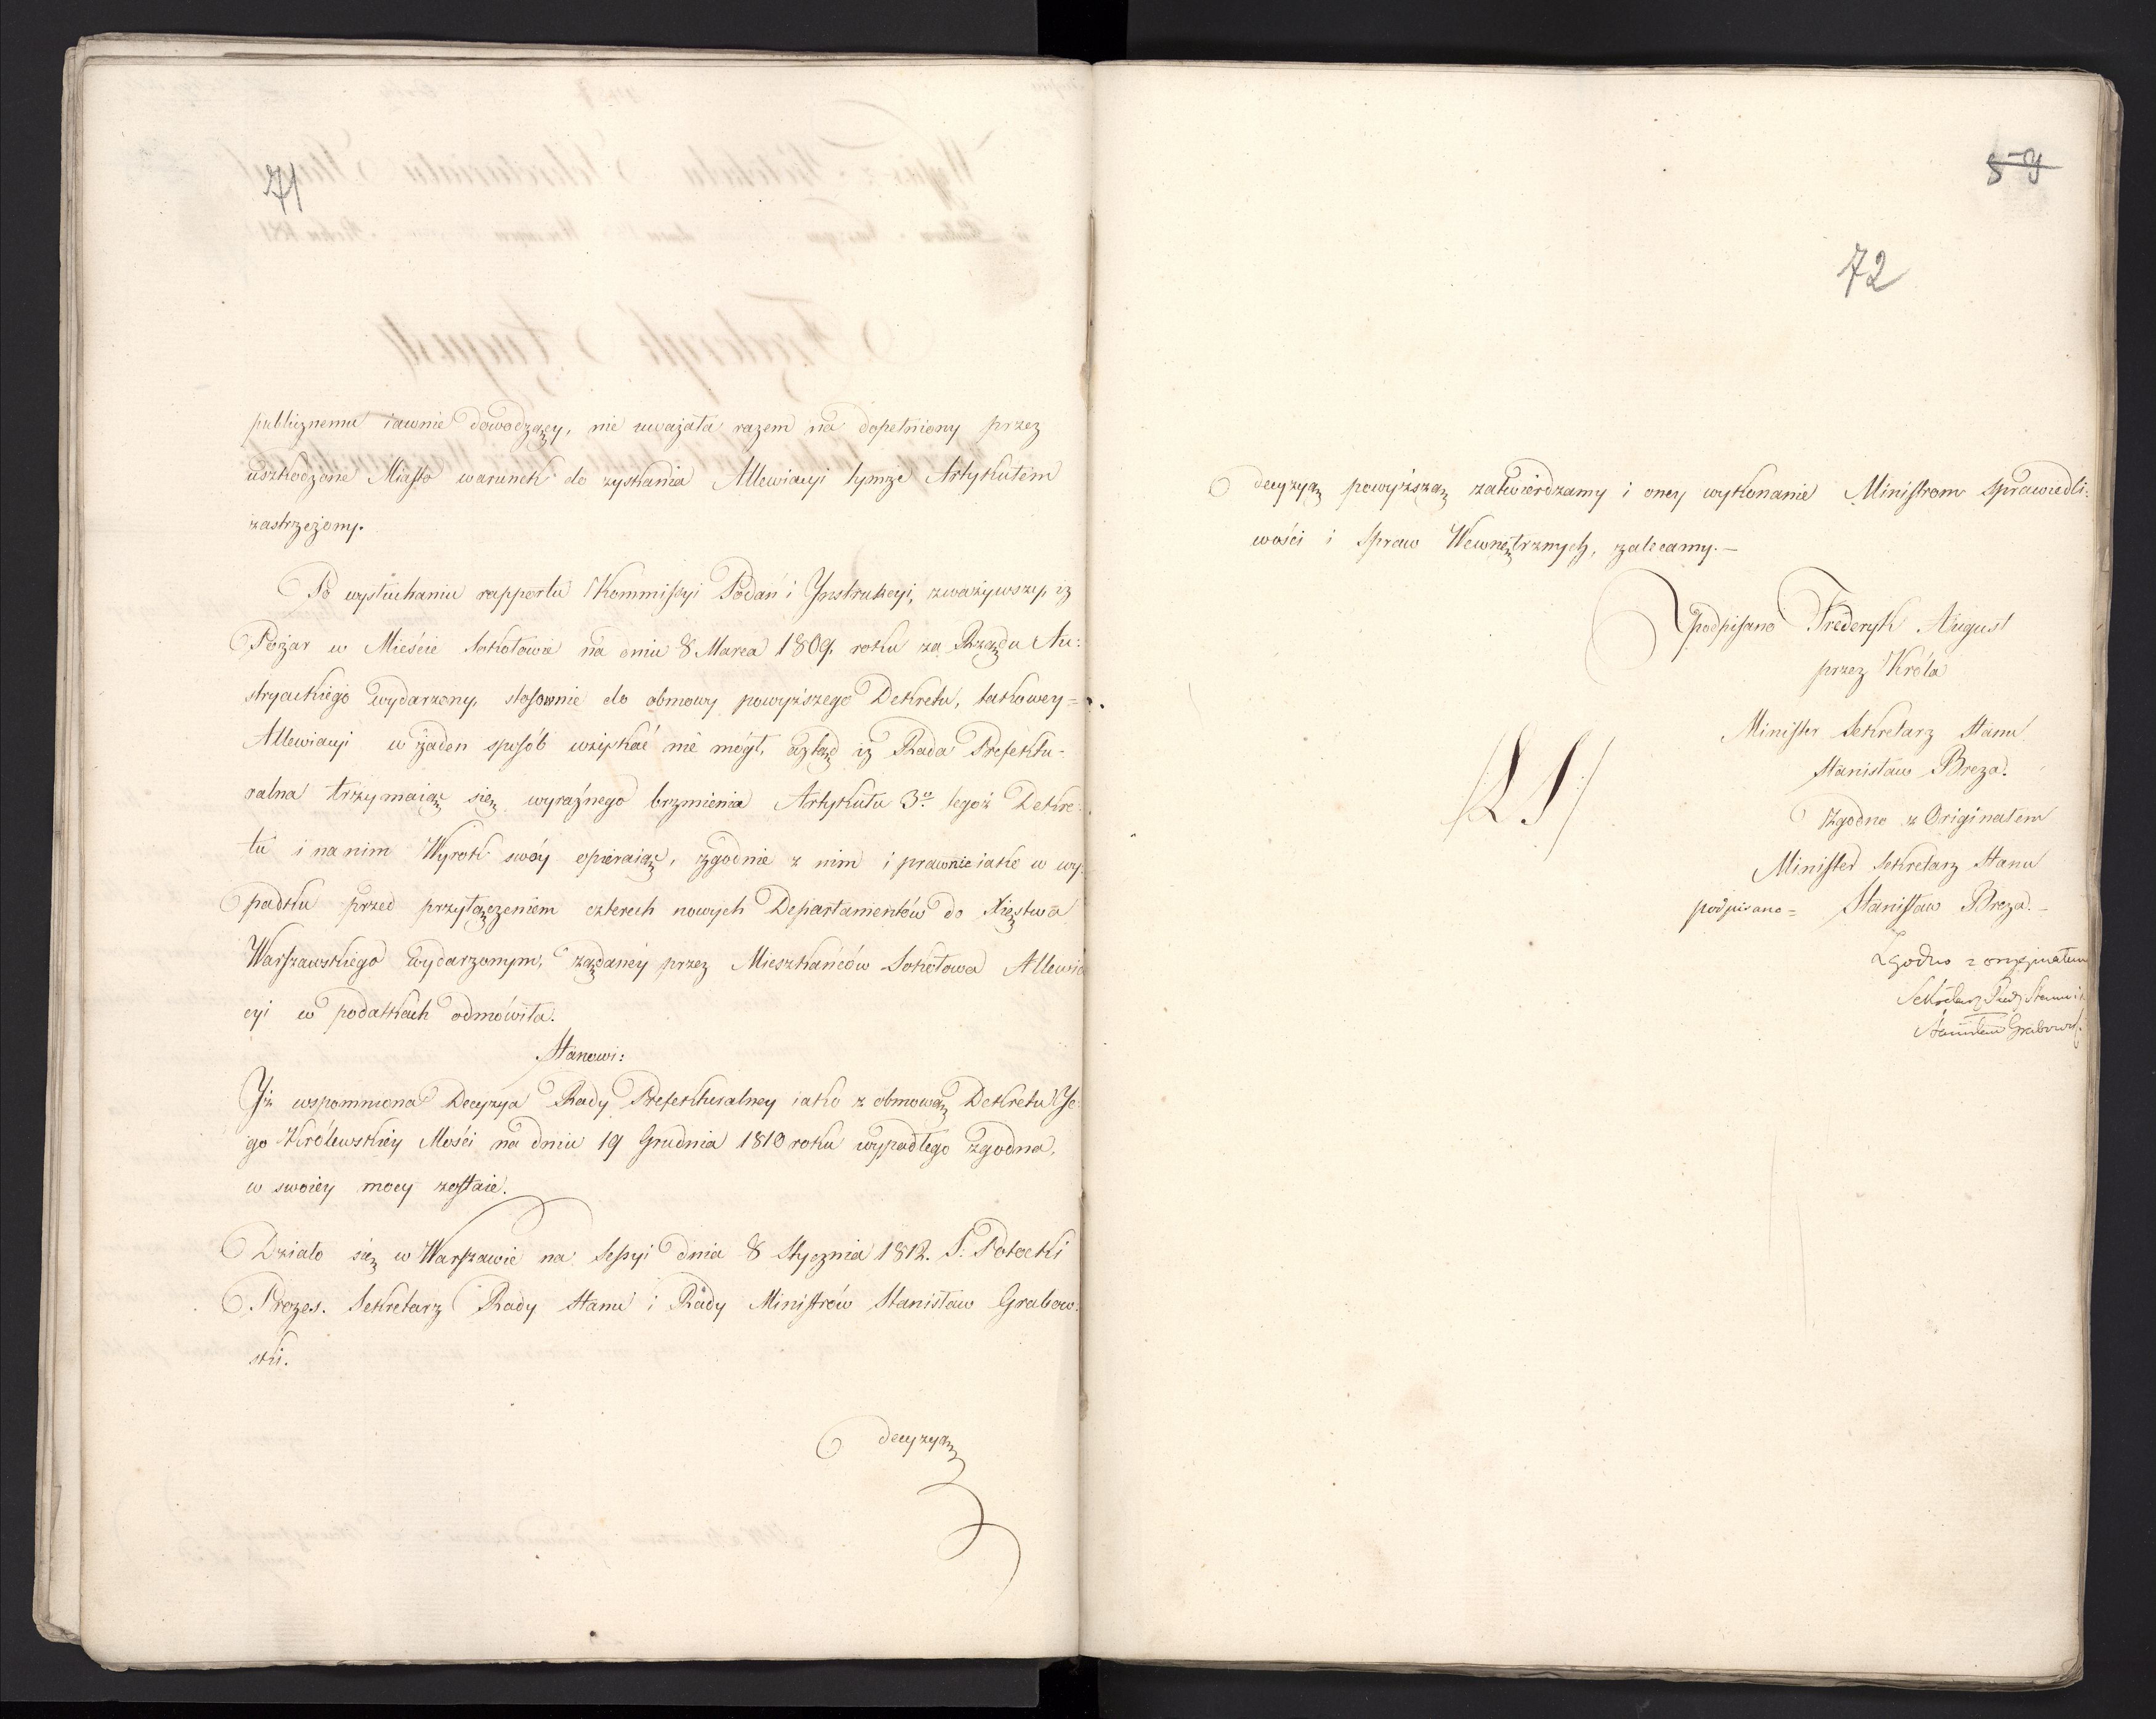 71
publicznemu iawnie dowodzący, nie uważała razem na dopełniony przez
uszkodzone Miasto warunek do zyskania Allewiacyi tymże Artykułem
zastrzeżony.
Po wysłuchaniu rapportu Kommissyi Podań i Instrukcyi, zważywszy, iż
Pożar w Mieście Sokołowie na dniu 8 Marca 1809 roku za Rządu Au:
stryackiego wydarzony, stosownie do obmowy powyższego Dekretu, takowey=
Allewiacyi w żaden sposób uzyskać nie mógł, a ztąd iż Rada Prefektu-
ralna trzymaiąc się wyraźnego brzmienia Artykułu 3º tegoż Dekre:
tu i na nim Wyrok swóy opieraiąc, zgodnie z nim i prawnie iako w wy:
padku przed przyłączeniem czterech nowych Departamentów do Xięstwa
Warszawskiego wydarzonym, żądaney przez Mieszkańców Sokołowa Allewia
cyi w podatkach odmówiła.
Stanowi:
Iż wspomniona Decyzya Rady Prefekturalney iako z obmową Dekretu Je:
go Królewskiéy Mości na dniu 19 Grudnia 1810 roku wypadłego zgodna,
w swoiey mocy zostaie.
Działo się w Warszawie na Sessyi dnia 8 Stycznia 1812. S: Potocki
Prezes. Sekretarz Rady Stanu i Rady Ministrów Stanisław Grabow:
ski.
decyzyą
59
72
decyzyą powyższą zatwierdzamy i oney wykonanie Ministrom Sprawiedli:
wości i Spraw Wewnętrznych, zalecamy.—
podpisano Frederyk August
przez Króla
Minister Sekretarz Stanu
Stanisław Breza.
/L S/
Zgodno z Originałem
Minister Sekretarz Stanu
podpisano= Stanisław Breza.—
Zgodno z oryginałem
Sekretarz Rady Stanu i
Stanisław Grabowsk